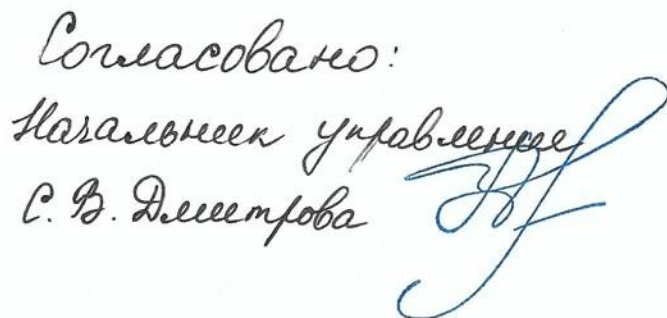 Согласовано:
Начальник управления
С. В. Дмитрова